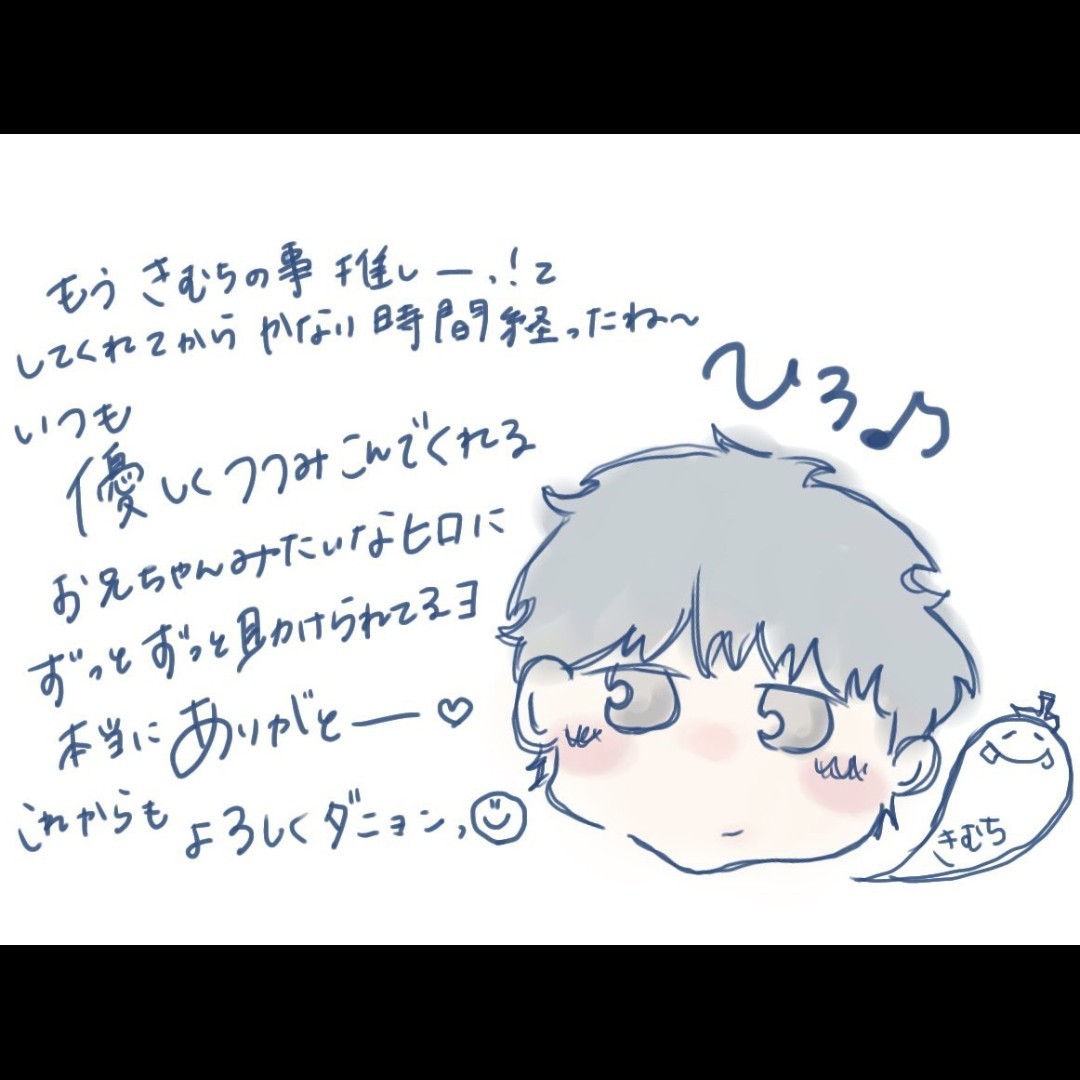 もうきむちの事推しー、!て
してくれてからかない時間経ったね〜
いつも
優しくつつみこんでくれる
お兄ちゃんみたいなヒロに
ずっとずっと助けられてるヨ
本当にありがとー♡
これからも よろしくダニョン、☺
ひろ♪
きむち